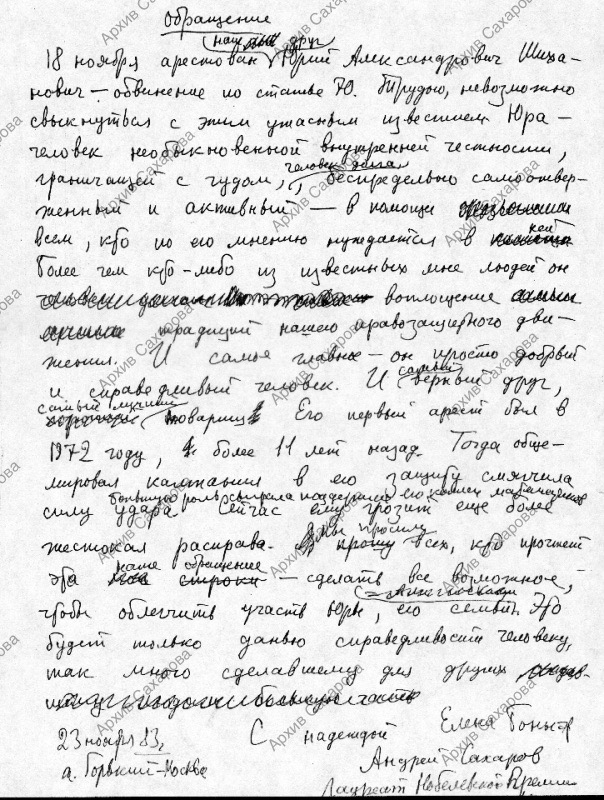 обращение
наш друг
18 ноября арестован Юрий Александрович Шиха-
нович – обвинение по статье 70. Трудно, невозможно
свыкнуться с этим ужасным известием Юра –
человек необыкновенной внутренней честности,
человек долга
граничащей с чудом, , беспредельно самоотвер-
женный и активный – в помощи
всем, кто по его мнению нуждается в ней
Более чем кто-либо из известных мне людей он
воплощение
традиций нашего правозащитного дви-
жения. И самое главное – он просто добрый
и справедливый человек. И самый верный друг,
самый лучший
товарищ Его первый арест был в
1972 году, более 11 лет назад. Тогда обще-
мировая кампания в его защиту смягчила
большую роль сыграла поддержка его коллег математиков
силу удара. Сейчас ему грозит еще более
жестокая расправа. Мы просим всех, кто прочтет
наше обращение
эта строки – сделать все возможное,
чтобы облегчить участь Юры, его семьи. Это
будет только данью справедливости человеку,
так много сделавшему для других
С надеждой
Елена Боннэр
23 ноября 83 г.
г. Горький-Москва
Андрей Сахаров
Лауреат Нобелевской Премии
Архив Сахарова